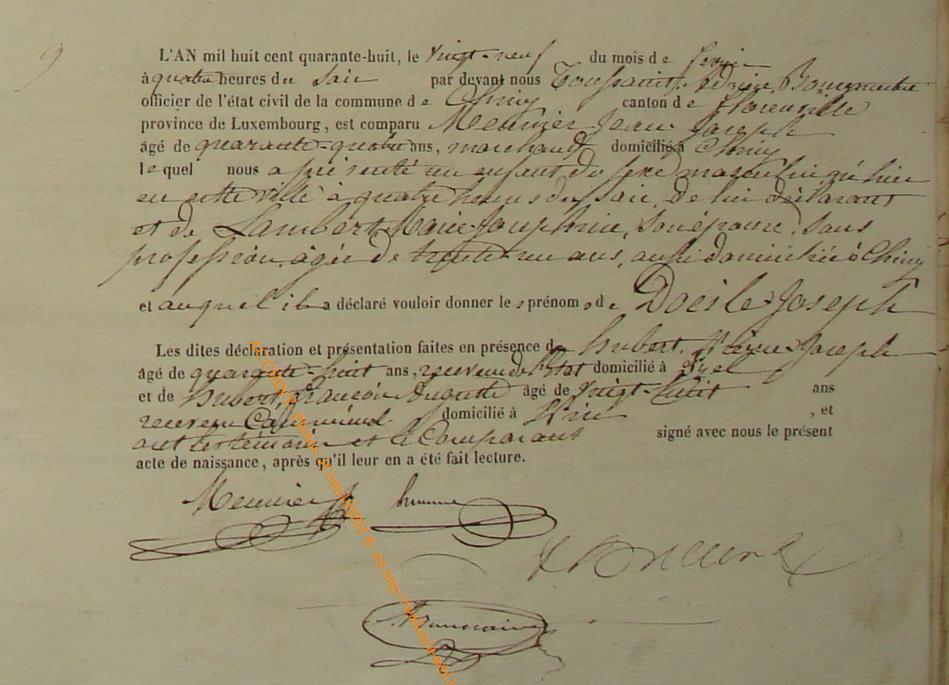 9
L'AN mil huit cent quarante-huit, le vingt-neuf du mois de
à quatre heures du soir par devant nous Toussaint
officier de l'état civil de la commune de Chiny canton de Florenville
province de Luxembourg, est comparu Meunier Jean Joseph
âgé de quarante-quatre ans, marchand domicilié à Chiny
lequel nous a présenté un enfant du sexe masculin né hier
en cette ville à quatre heures du soir, de lui déclarant
et de Lambert Marie Josephine, son épouse, sans
profession, âgée de trente un ans, aussi domiciliée à Chiny
et auquel il a déclaré vouloir donner les prénoms de Docile Joseph
Les dites déclaration et présentation faites en présence de hubert, Joseph
âgé de quarante-huit ans, receveur de l'Etat domicilié à
et de hubert, françois Auguste âgé de vingt-huit ans
receveur domicilié à , et
ont les témoins et le Comparant signé avec nous le présent
acte de naissance, après qu'il leur en a été fait lecture.
Meunier JJ